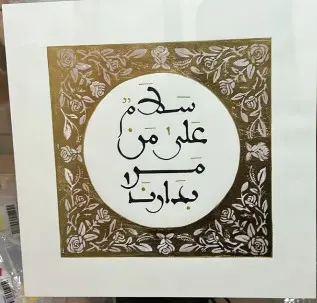 سلامٌ
على مَن
مرّا
بدارنا